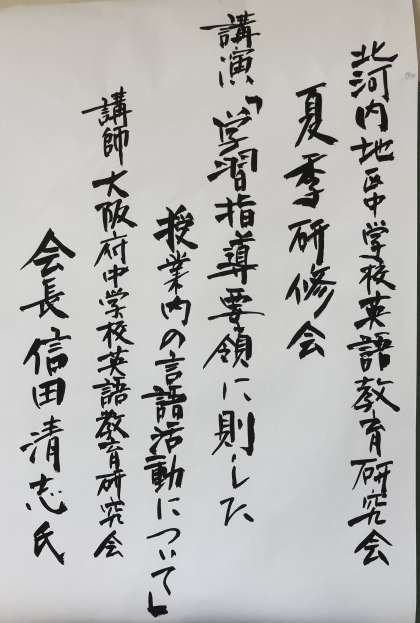 北河内地区中学校英語教育研究会
夏季研修会
講演「学習指導要領に則した
授業内の言語活動について」
講師 大阪府中学校英語教育研究会
会長 信田清志氏